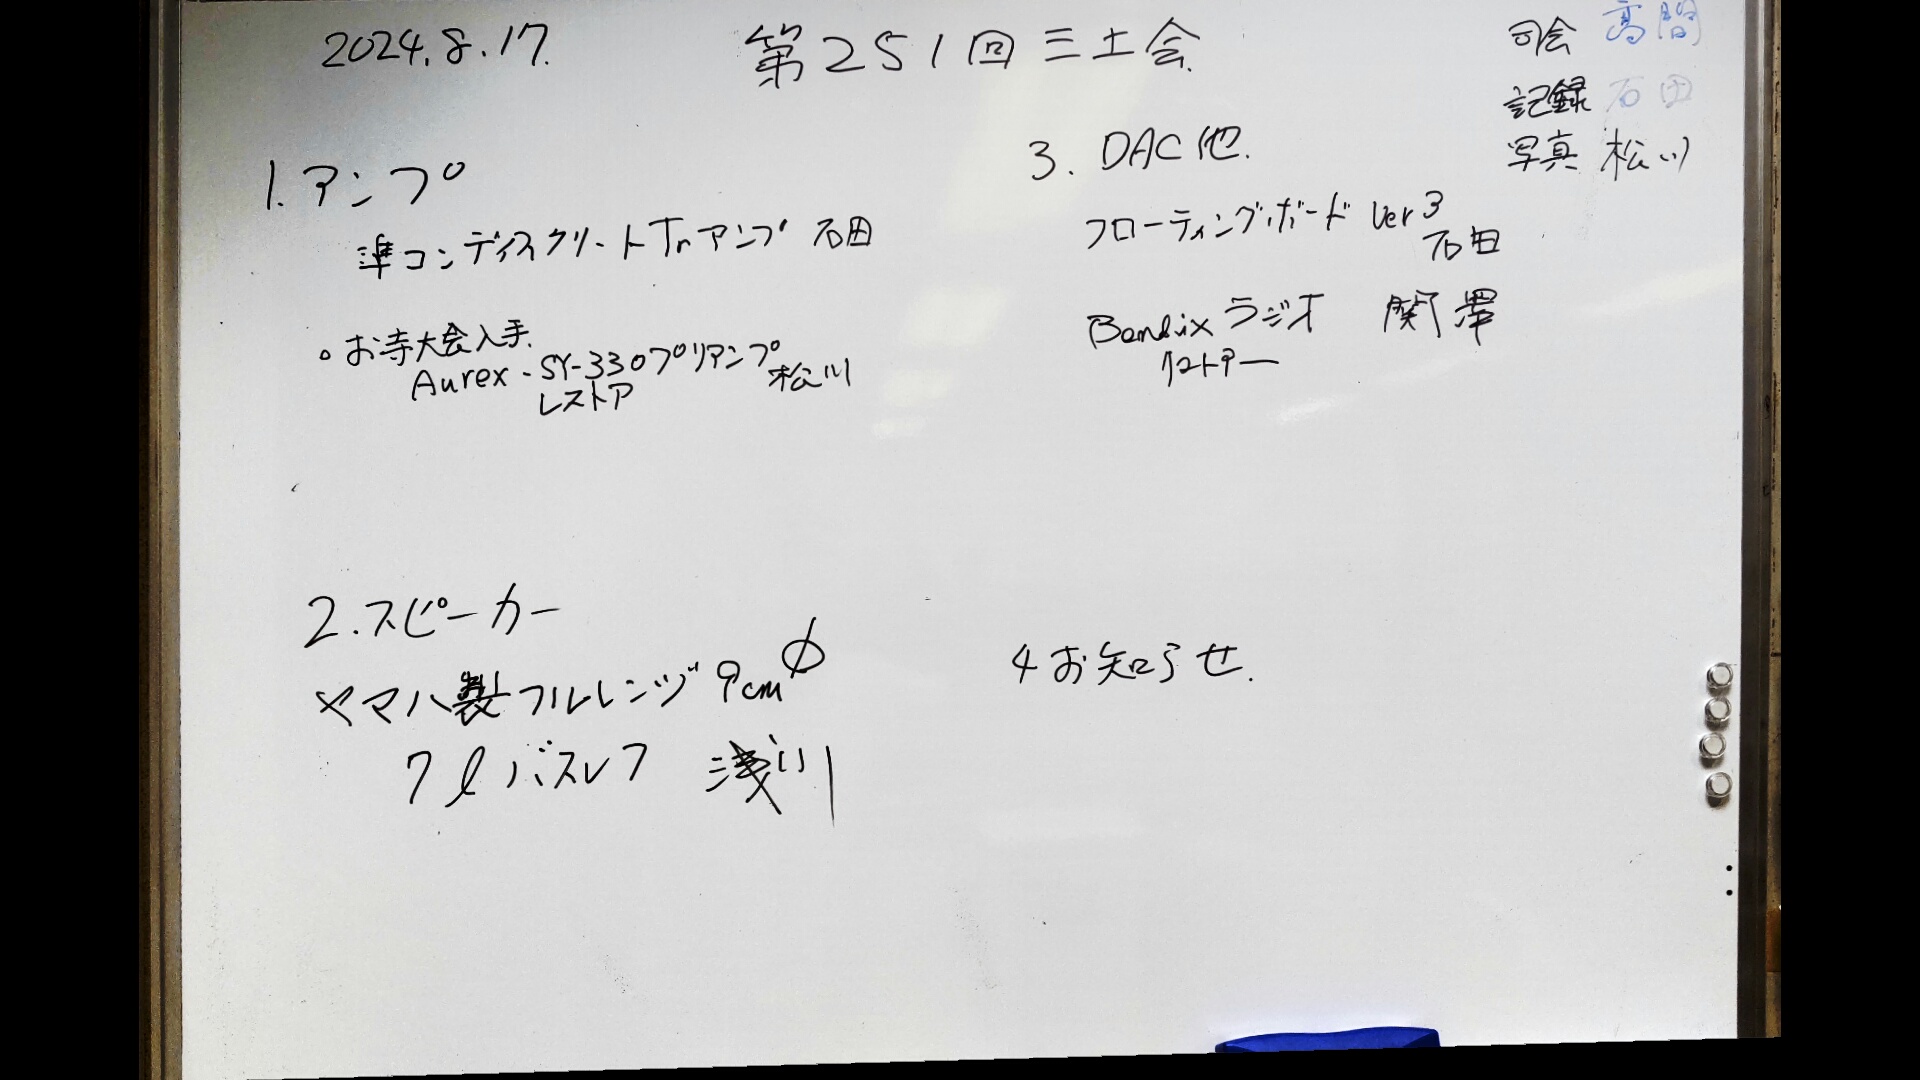 2024.8.17.
第251回三土会
司会 高間
記録 石田
写真 松川
1.アンプ
準コンディスクリートTrアンプ 石田
お寺大会入手.
Aurex - SY-330プリアンプ 松川
レストア
2.スピーカー
ヤマハ製フルレンジ 9cmφ
7ℓバスレフ 浅川
3. DAC他.
フローティングボード Ver3
石田
Bendix ラジオ 関澤
4 お知らせ.